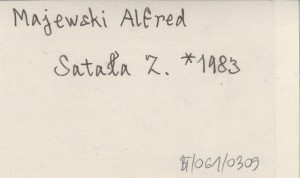 Majewski Alfred
Satała Z. *1983
II/061/0309